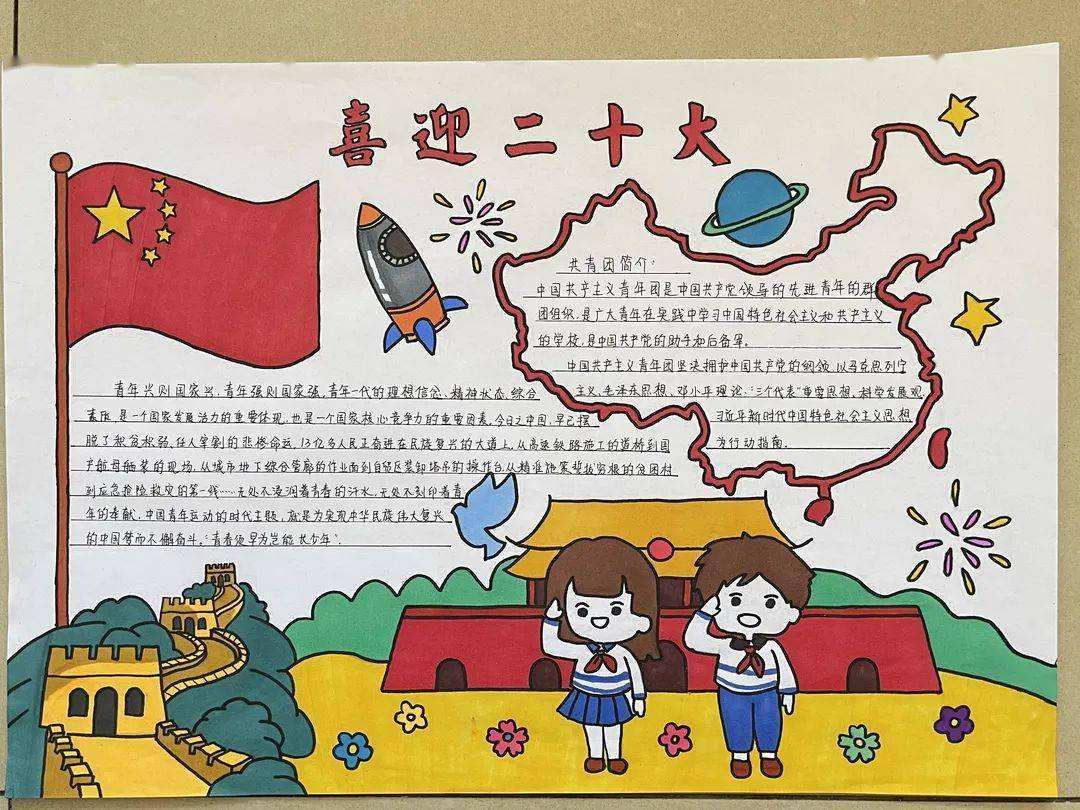 喜迎二十大
共青团简介:
中国共产主义青年团是中国共产党领导的先进青年的群
团组织,是广大青年在实践中学习中国特色社会主义和共产主义
的学校,是中国共产党的助手和后备军。
中国共产主义青年团坚决拥护中国共产党的纲领,以马克思列宁
主义、毛泽东思想、邓小平理论、“三个代表”重要思想、科学发展观、
习近平新时代中国特色社会主义思想
为行动指南。
青年兴则国家兴,青年强则国家强,青年一代的理想信念、精神状态、综合
素质,是一个国家发展活力的重要体现,也是一个国家核心竞争力的重要因素。今日之中国,早已摆
脱了积贫积弱、任人宰割的悲惨命运,13亿多人民正奋进在民族复兴的大道上。从高速铁路施工的道桥到国
产航母舾装的现场,从城市地下综合管廊的作业面到自贸区装卸场吊的操作台,从精准施策拔穷根的贫困村
到应急抢险救灾的第一线……无处不浸润着青春的汗水,无处不刻印着青
年的奉献。中国青年运动的时代主题,就是为实现中华民族伟大复兴
的中国梦而不懈奋斗。“青春须早为,岂能长少年”.